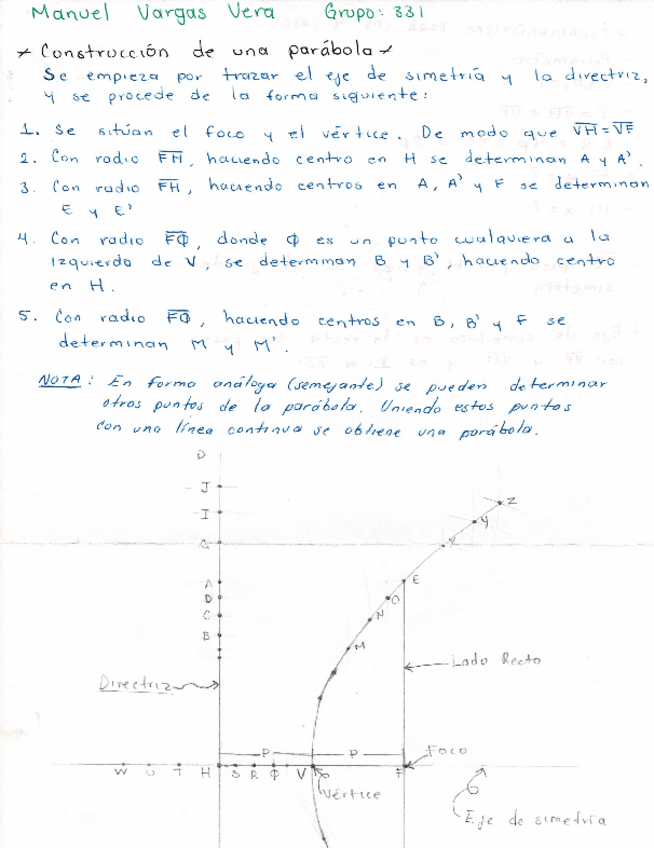 Manuel Vargas Vera Grupo: 331
* Construcción de una parábola *
Se empieza por trazar el eje de simetría y la directriz,
y se procede de la forma siguiente:
1. Se sitúan el foco y el vértice. De modo que V̅H̅=V̅F̅
2. Con radio F̅H̅, haciendo centro en H se determinan A y A'.
3. Con radio F̅H̅, haciendo centros en A, A' y F se determinan
E y E'
4. Con radio F̅Φ̅, donde Φ es un punto cualquiera a la
izquierda de V, se determinan B y B', haciendo centro
en H.
5. Con radio F̅Φ̅, haciendo centros en B, B' y F se
determinan M y M'.
NOTA: En forma análoga (semejante) se pueden determinar
otros puntos de la parábola. Uniendo estos puntos
con una línea continua se obtiene una parábola.
D
J
Z
I
Y
G
A
E
D
O
C
N
B
M
Lado Recto
Directriz
P P
Foco
W U T H S R Φ V F
Vértice
Eje de simetría